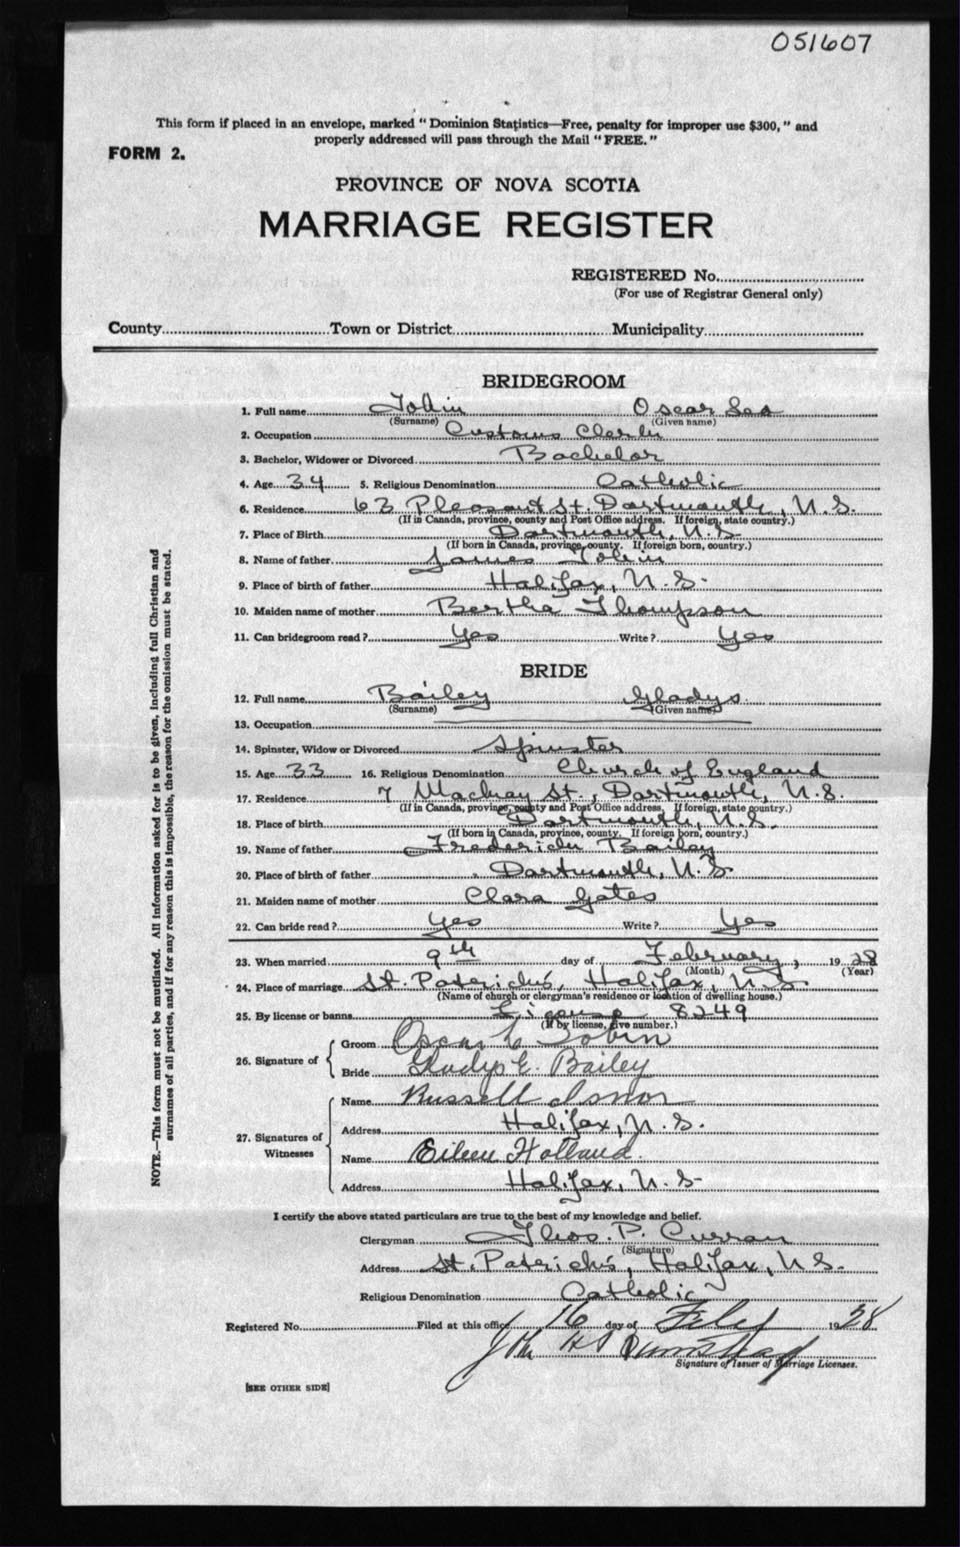 051607
This form if placed in an envelope, marked "Dominion Statistics—Free, penalty for improper use $300," and
properly addressed will pass through the Mail "FREE."
FORM 2.
PROVINCE OF NOVA SCOTIA
MARRIAGE REGISTER
REGISTERED No.
(For use of Registrar General only)
County Town or District Municipality
BRIDEGROOM
1. Full name Tobin Oscar Leo
(Surname) (Given name)
2. Occupation Customs Clerk
3. Bachelor, Widower or Divorced Bachelor
4. Age 34 5. Religious Denomination Catholic
6. Residence 63 Pleasant St. Dartmouth, N.S.
(If in Canada, province, county and Post Office address. If foreign, state country.)
7. Place of Birth Dartmouth, N.S.
(If born in Canada, province, county. If foreign born, country.)
8. Name of father James Tobin
9. Place of birth of father Halifax, N.S.
10. Maiden name of mother Bertha Thompson
11. Can bridegroom read? Yes Write? Yes
BRIDE
12. Full name Bailey Gladys
(Surname) (Given name)
13. Occupation
14. Spinster, Widow or Divorced Spinster
15. Age 33 16. Religious Denomination Church of England
17. Residence 7 St., Dartmouth, N.S.
(If in Canada, province, county and Post Office address, If foreign, state country.)
18. Place of birth Dartmouth, N.S.
(If born in Canada, province, county. If foreign born, country.)
19. Name of father Frederick Bailey
20. Place of birth of father Dartmouth, N.S.
21. Maiden name of mother Clara Gates
22. Can bride read? Yes Write? Yes
23. When married 9th day of February, 1928
(Month) (Year)
24. Place of marriage St. Patrick's, Halifax, N.S.
(Name of church or clergyman's residence or location of dwelling house.)
25. By license or banns License 8249
(If by license, give number.)
26. Signature of
Groom Oscar L Tobin
Bride Gladys E. Bailey
27. Signatures of Witnesses
Name Russell Isnor
Address Halifax, N.S.
Name Eileen Holland.
Address Halifax, N.S.
I certify the above stated particulars are true to the best of my knowledge and belief.
Clergyman Thos. P. Curran
(Signature)
Address St. Patrick's, Halifax, N.S.
Religious Denomination Catholic
Registered No. Filed at this office 16 day of Feby 1928
John
Signature of Issuer of Marriage Licenses.
[SEE OTHER SIDE]
NOTE.—This form must not be mutilated. All information asked for is to be given, including full Christian and
surnames of all parties, and if for any reason this is impossible, the reason for the omission must be stated.